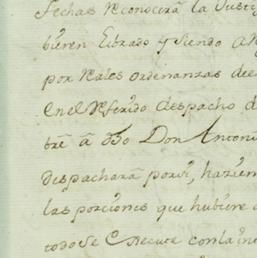 fechas Reconocerá la Justi
bieren Librado y siendo
por Reales ordenanzas de
en el Referido despacho d
bre â dho Don Antoni
despachará por si, hazien
las porciones que hubiere
todo se Execute con la in